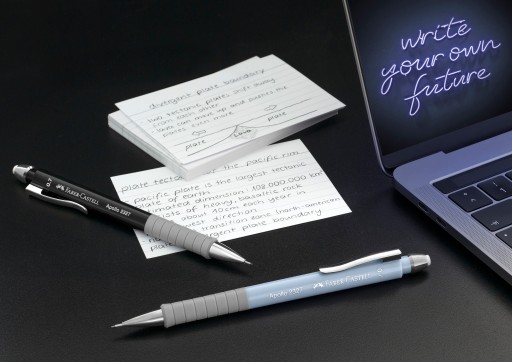 write
your own
future
divergent plate boundary
two tectonic plates shift away
from each other
lava can move up and
plates even more
lava
plate
plate
plate tectonics of the pacific rim
pacific plate is the largest tectonic
plate of earth
estimated dimension: 108.000.000 km
consists of heavy, basaltic rock
about 10cm each year in
west direction
transition bank (north-american
divergent plate boundary
0.7 FABER-CASTELL Apollo 2327
Apollo 2327 FABER-CASTELL